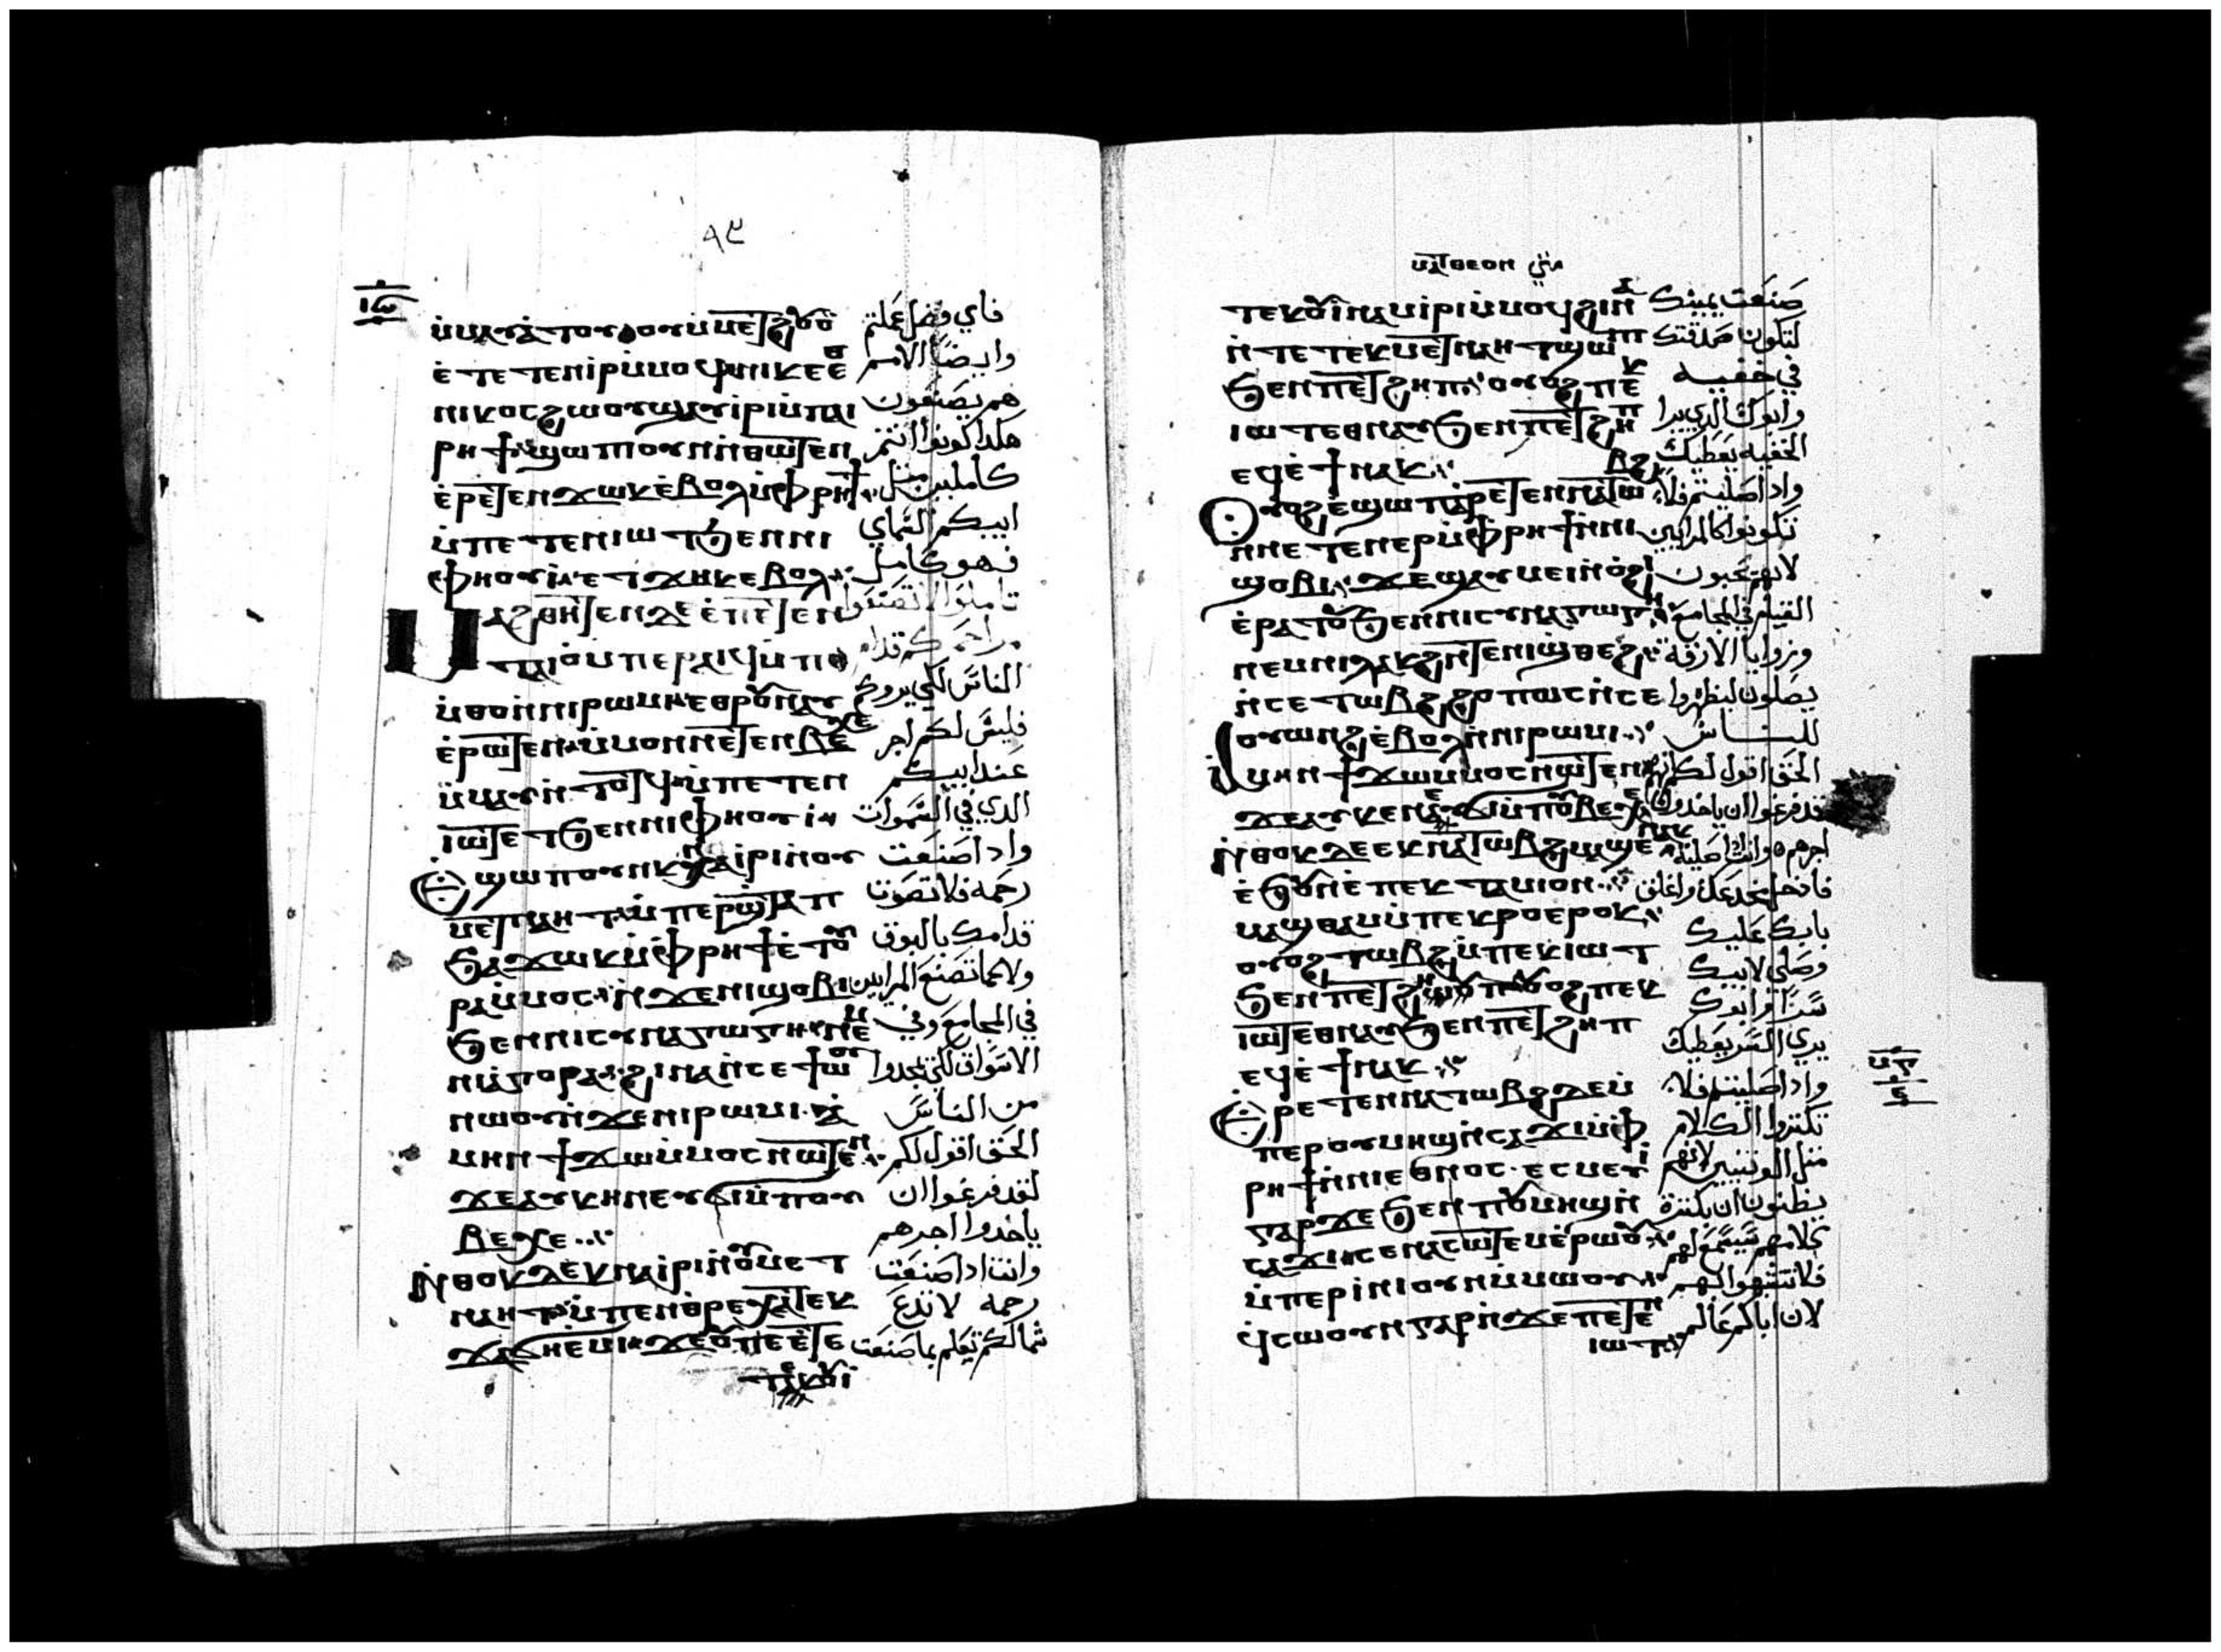 ٩٤
ⲙ̀ⲙⲁⲩⲁ̀ⲧⲟⲩ ⲟⲩ ⲙ̀ⲙⲉⲧϩⲟⲩⲟ̀ فاي فضل عملتم
ⲉ̀ⲧⲉⲧⲉⲛⲓ̀ⲣⲓ ⲙ̀ⲙⲟϥ ⲛⲓⲕⲉⲉⲑ وايضا الامم
ⲛⲓⲕⲟⲥ ϩⲱⲟⲩ ϣⲁⲩⲓ̀ⲣⲓ ⲙ̀ⲡⲁⲓ هم يصنعون
ⲣⲏϯ ϣⲱⲡⲟⲩⲛ ⲛ̀ⲑⲱⲧⲉⲛ هكدا كونوا انتم
ⲉ̀ⲣⲉⲧⲉⲛϫⲱⲕ ⲉ̀ⲃⲟⲗ ⲙ̀ⲫⲣⲏϯ كاملين مثل
ⲙ̀ⲡⲉⲧⲉⲛⲓⲱⲧ ϧⲉⲛ ⲛⲓ ابيكم السماي
ⲫⲏⲟⲩⲓ̀ ⲉⲧϫⲏⲕ ⲉⲃⲟⲗ فهو كامل
ⲙⲁϩⲑⲏⲧⲉⲛ ⲇⲉ ⲉ̀ⲡⲉⲧⲉⲛ تاملوا لا تصنعوا
ⲧⲁⲓⲟ ⲙ̀ⲡⲉⲣⲁⲓϥ ⲙ̀ⲡⲉ مراحمكم قدام
ⲙ̀ⲑⲟ ⲛ̀ⲛⲓⲣⲱⲙⲓ ⲉⲑⲣⲟⲩⲛⲁⲩ الناس لكي يروكم
ⲉ̀ⲣⲱⲧⲉⲛ ⲙ̀ⲙⲟⲛ ⲛⲧⲉⲧⲉⲛ ⲃⲉⲭⲉ فليس لكم اجر
ⲙ̀ⲙⲁⲩ ⲛ̀ⲧⲟⲧϥ ⲙ̀ⲡⲉⲧⲉⲛ عند ابيكم
ⲓⲱⲧ ⲉⲧ ϧⲉⲛ ⲛⲓⲫⲏⲟⲩⲓ̀ الدي في السموات
ⲉϣⲱⲡ ⲟⲩⲛ ⲕⲛⲁⲓ̀ⲣⲓ ⲛ̀ⲟⲩ واد اصنعت
ⲙⲉⲧⲛⲁⲏⲧ ⲙ̀ⲡⲉⲣⲱϣ ⲧⲁⲡ رحمه فلا تصوت
ϧⲁϫⲱⲕ ⲙ̀ⲫⲣⲏϯ ⲉ̀ⲧⲟⲩ قدامك بالبوق
ⲣⲁ ⲙ̀ⲙⲟⲥ ⲛ̀ϫⲉ ⲛⲓϣⲟⲃⲓ ولا كما تصنع المرايين
ϧⲉⲛ ⲛⲓⲥⲩⲛⲁⲅⲱⲅⲏ ⲛⲉⲙ في المجامع وفي
ⲛⲓⲁⲅⲟⲣⲁ ϩⲓⲛⲁ ⲛ̀ⲥⲉϯⲱⲟⲩ الاسواق لكي يمجدوا
ⲛⲱⲟⲩ ⲛ̀ϫⲉ ⲛⲓⲣⲱⲙⲓ ⲁ̀ من الناس
ⲙⲏⲛ ϯϫⲱ ⲙ̀ⲙⲟⲥ ⲛⲱⲧⲉⲛ الحق اقول لكم
ϫⲉ ⲁⲩⲕⲏⲛ ⲉⲩϭⲓ ⲙ̀ⲡⲟⲩ لقد فرغوا ان
ⲃⲉⲭⲉ ياخدوا اجرهم
ⲛ̀ⲑⲟⲕ ⲇⲉ ⲉⲕⲛⲁⲓ̀ⲣⲓ ⲛ̀ⲟⲩⲙⲉⲧ وانت اداصنعت
ⲛⲁⲏⲧ ⲙ̀ⲡⲉⲛⲑⲣⲉ ⲧⲉⲕ رحمه لا تدع
ϫⲁϭⲏ ⲉ̀ⲙⲓ ϫⲉ ⲟⲩ ⲡⲉⲧⲉ شمالك تعلم بما صنعت
ⲧⲉⲕⲟⲩⲓ̀
ⲙⲁⲧⲑⲉⲟⲛ متي
ⲧⲉⲕⲟⲩⲓ̀ⲛⲁⲙ ⲓ̀ⲣⲓ ⲙ̀ⲙⲟϥ ϩⲓⲛⲁ صنعت يمينك
ⲛ̀ⲧⲉ ⲧⲉⲕⲙⲉⲧⲛⲁⲏⲧ ϣⲱⲡ لتكون صدقتك
ϧⲉⲛ ⲡⲉⲧϩⲏⲡ ⲟⲩⲟϩ ⲡⲉⲕ في خفيه
ⲓⲱⲧ ⲉⲑⲛⲁⲩ ϧⲉⲛ ⲡⲉⲧϩⲏⲡ وابوك الدي يرا
ⲉϥⲉ̀ϯ ⲛⲁⲕ الخفيه يعطيك
ⲟⲩⲟϩ ⲉ̀ϣⲱⲡ ⲁⲣⲉⲧⲉⲛⲛⲁⲧⲱⲃϩ واد اصليتم فلا
ⲛ̀ⲛⲉⲧⲉⲛⲉⲣ ⲙ̀ⲫⲣⲏϯ ⲛ̀ⲛⲓ تكونوا كالمرايين
ϣⲟⲃⲓ ϫⲉ ϣⲁⲩⲙⲉⲓ ⲛ̀ⲟ̀ϩⲓ لانهم يحبون
ⲉ̀ⲣⲁⲧⲟⲩ ϧⲉⲛ ⲛⲓⲥⲩⲛⲁⲅⲱⲅⲏ القيام في المجامع
ⲛⲉⲙ ⲛⲓⲗⲁⲕϩ ⲛⲧⲉ ⲛⲓϣⲑⲉϩ وزوايا الازقة
ⲛ̀ⲥⲉⲧⲱⲃϩ ϩⲟⲡⲱⲥ ⲛ̀ⲥⲉ يصلون ليظهروا
ⲟⲩⲱⲛϩ ⲉ̀ⲃⲟⲗ ⲛ̀ⲛⲓⲣⲱⲙⲓ للناس
ⲁ̀ⲙⲏⲛ ϯϫⲱ ⲙ̀ⲙⲟⲥ ⲛⲱⲧⲉⲛ الحق اقول لكم انهم
ϫⲉ ⲁⲩⲕⲉⲛ ⲉⲩϭⲓ ⲙ̀ⲡⲟⲩⲃⲉⲭⲉ قد فرغوا ان ياخدوا
ⲛ̀ⲑⲟⲕ ⲇⲉ ⲉⲕⲛⲁⲧⲱⲃϩ ⲙⲁϣⲉ ⲛⲁⲕ اجرهم وانت اداصليت
ⲉ̀ϧⲟⲩⲛ ⲉ̀ⲡⲉⲕⲧⲁⲙⲓⲟⲛ فادخل مخدعك واغلق
ⲙⲁϣⲑⲁⲙ ⲙ̀ⲡⲉⲕⲣⲟ ⲉⲣⲟⲕ بابك عليك
ⲟⲩⲟϩ ⲧⲱⲃϩ ⲙ̀ⲡⲉⲕⲓⲱⲧ وصلي لابيك
ϧⲉⲛ ⲡⲉⲧϩⲏⲡ ⲟⲩⲟϩ ⲡⲉⲕ سرا وابوك
ⲓⲱⲧ ⲉⲑⲛⲁⲩ ϧⲉⲛ ⲡⲉⲧϩⲏⲡ يري السر يعطيك
ⲉϥⲉ̀ϯ ⲛⲁⲕ
ⲉⲣⲉⲧⲉⲛⲛⲁⲧⲱⲃϩ ⲇⲉ ⲙ̀ واد اصليتم فلا
ⲡⲉⲣⲟⲩⲙⲏϣ ⲛ̀ⲥⲁϫⲓ ⲙ̀ⲫ تكتروا الكلام
ⲣⲏϯ ⲛ̀ⲛⲓⲉⲑⲛⲟⲥ ⲉⲥⲙⲉⲩⲓ مثل الوثنيين لانهم
ⲅⲁⲣ ϫⲉ ϧⲉⲛ ⲡⲟⲩⲙⲏϣ ⲛ̀ يظنون ان بكثرة
ⲥⲁϫⲓ ⲥⲉⲛⲁⲥⲱⲧⲉⲙ ⲉ̀ⲣⲱⲟⲩ كلامهم يسمع لهم
ⲙ̀ⲡⲉⲣⲓ̀ⲛⲓ ⲟⲩⲛ ⲙ̀ⲙⲱⲟⲩ فلا تتشبهوا بهم
ϥ̀ⲥⲱⲟⲩⲛ ⲅⲁⲣ ⲛ̀ϫⲉ ⲡⲉⲧⲉⲛ لان اباكم عالم
ⲓⲱⲧ